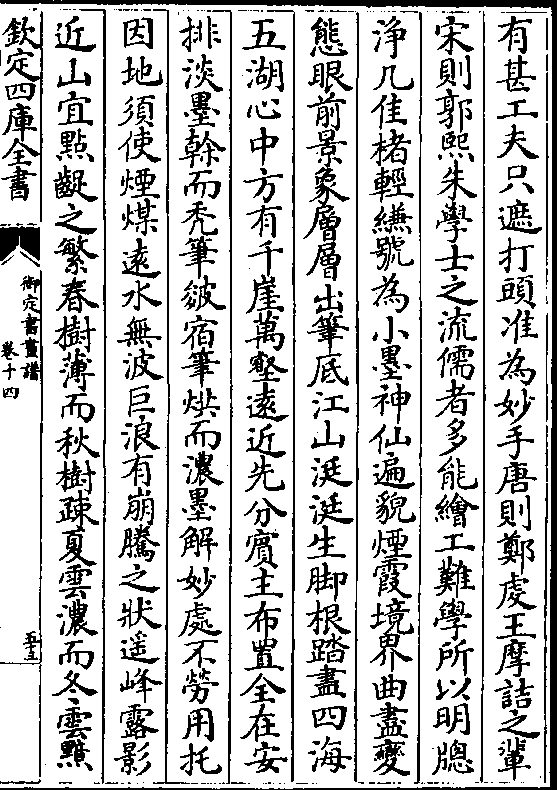 有甚工夫只遮打頭准為妙手唐則鄭虔王摩詰之輩
宋則郭熙朱學士之流儒者多能繪工難學所以明牕
净几佳楮輕縑號為小墨神仙遍貌煙霞境界曲盡變
態眼前景象層層出筆底江山涎涎生脚根踏盡四海
五湖心中方有千崖萬壑遠近先分賔主布置全在安
排淡墨幹而秃筆皴宿筆烘而濃墨解妙處不勞用托
因地須使煙煤遠水無波巨浪有崩騰之狀遥峰露影
近山宜點齪之繁春樹薄而秋樹疎夏雲濃而冬雲黯
欽定四庫全書
御定書畫譜
卷十四
五十三